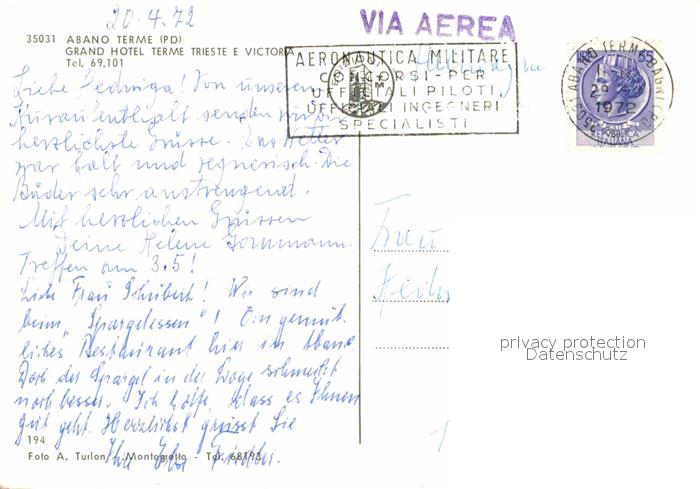 20.4.72
VIA AEREA
35031 ABANO TERME (PD)
GRAND HOTEL TERME TRIESTE E VICTORIA
Tel. 69,101
AERONAUTICA MILITARE
CONCORSI-PER
UFFICIALI PILOTI
UFFICIALI INGEGNERI
SPECIALISTI
ABANO TERME
1972
Liebe Hedwiga! Von unserem
Kuraufenthalt senden wir
herzlichste Grüsse. Das Wetter
war kalt und regnerisch. Die
Bäder sehr anstrengend.
Mit herzlichen Grüssen
Deine Helene
Treffen am 3.5!
Liebe Frau Schubert! Wir sind
beim "Spargelessen"! Ein gemüt-
liches Restaurant hier in Abano
Doch der Spargel in der schmeckt
noch besser. Ich hoffe, dass es Ihnen
gut geht. Herzlichst grüsst Sie
Ihre Else
Frau
privacy protection
Datenschutz
194
Foto A. Turlon - Montegrotto - Tel. 68193